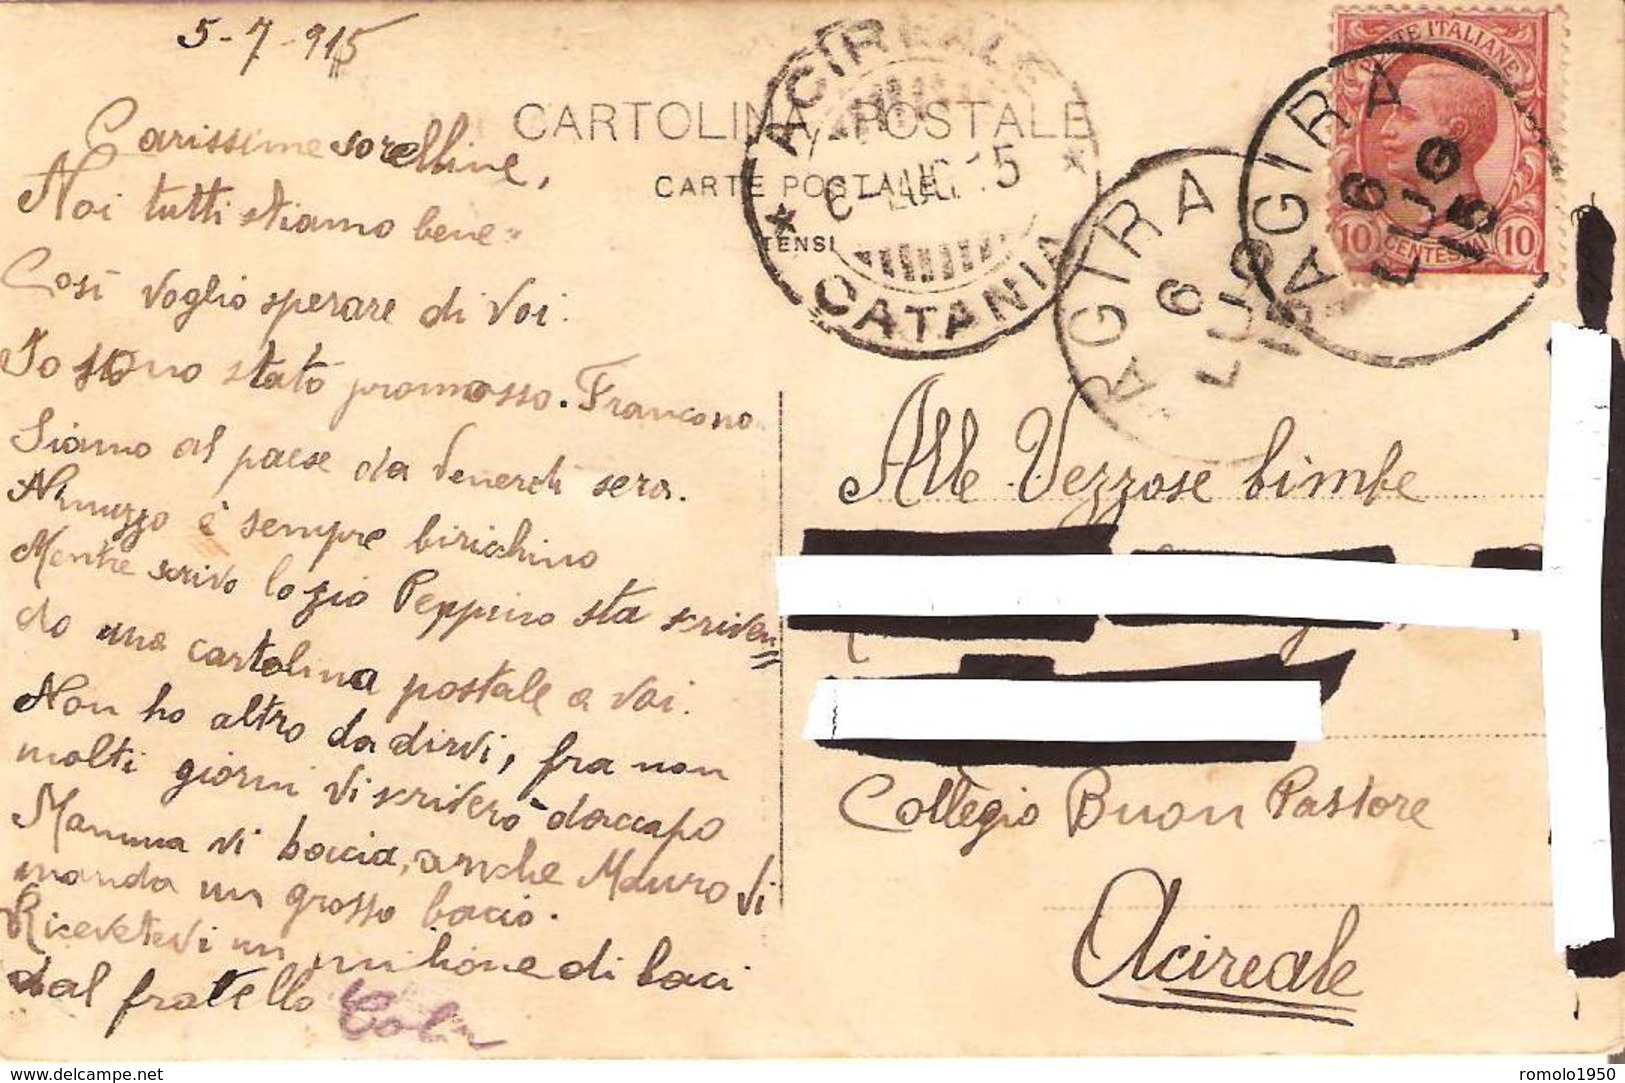 5-7-915
CARTOLINA POSTALE
CARTE POSTALE
TENSI
ACIREALE
6 - LUG. 15
CATANIA
AGIRA
6 LUG 15
AGIRA
6 LUG 15
POSTE ITALIANE
10 CENTESIMI 10
Carissime sorelline,
Noi tutti stiamo bene
Così voglio sperare di voi.
Io sono stato promosso.
Siamo al paese da Venerdì sera.
è sempre birichino
Mentre scrivo lo zio Peppino sta scriven
do una cartolina postale a voi.
Non ho altro da dirvi, fra non
molti giorni vi scriverò daccapo
Mamma vi bacia, anche Mauro vi
manda un grosso bacio.
Ricevetevi un milione di baci
dal fratello
Alle Vezzose bimbe
Collegio Buon Pastore
Acireale
delcampe.net
romolo1950